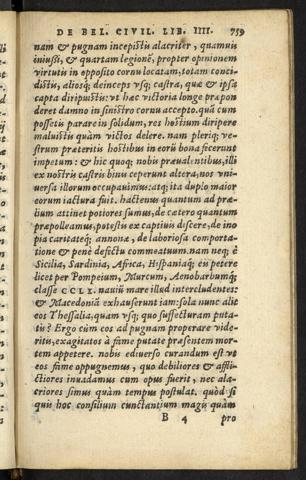 DE BEL. CIVIL. LIB. IIII. 759
nam & pugnam incepistis alacriter, quamuis
iniussi, & quartam legionē, propter opinionem
virtutis in opposito cornu locatam, totam conci-
distis, aliosq́; deinceps vsq; castra, quæ & ipsa
capta diripuistis: vt hæc victoria longe prapon
deret damno in sinistro cornu accepto. quā cum
possetis parare in solidum, rex hostium diripere
maluistis quàm victos delere. nam pleriq; ve-
strum præteritis hostibus in eorū bona fecerunt
impetum: & hic quoq; nobis præualentibus, illi
ex nostris castris binis ceperunt altera, nos vni-
uersa illorum occupauimus: atq; ita duplo maior
eorum iactura fuit. hactenus quantum ad præ-
lium attinet potiores sumus, de cætero quantum
præpolleamus, potestis ex captiuis discere, de ino
pia caritateq; annonæ, de laboriosa comporta-
tione & penè defectu commeatuum. nam neq; è
Sicilia, Sardinia, Africa, Hispaniaq; eis petere
licet per Pompeium, Murcum, Aenobarbumq́;
classe CCLX. nauiū mare illud intercludentes:
& Macedoniā exhauserunt iam: sola nunc alit
eos Thessalia, quam vsq; quo suffecturam puta-
tis? Ergo cùm eos ad pugnam properare vide-
ritis, exagitatos à fame putate præsentem mor-
tem appetere. nobis ediuerso curandum est vt
eos fame oppugnemus, quo debiliores & affli-
ctiores inuadamus cum opus fuerit, nec ala-
criores simus quàm tempus postulat. quòd si
quis hoc consilium cunctantium magis quàm
B 4 pro